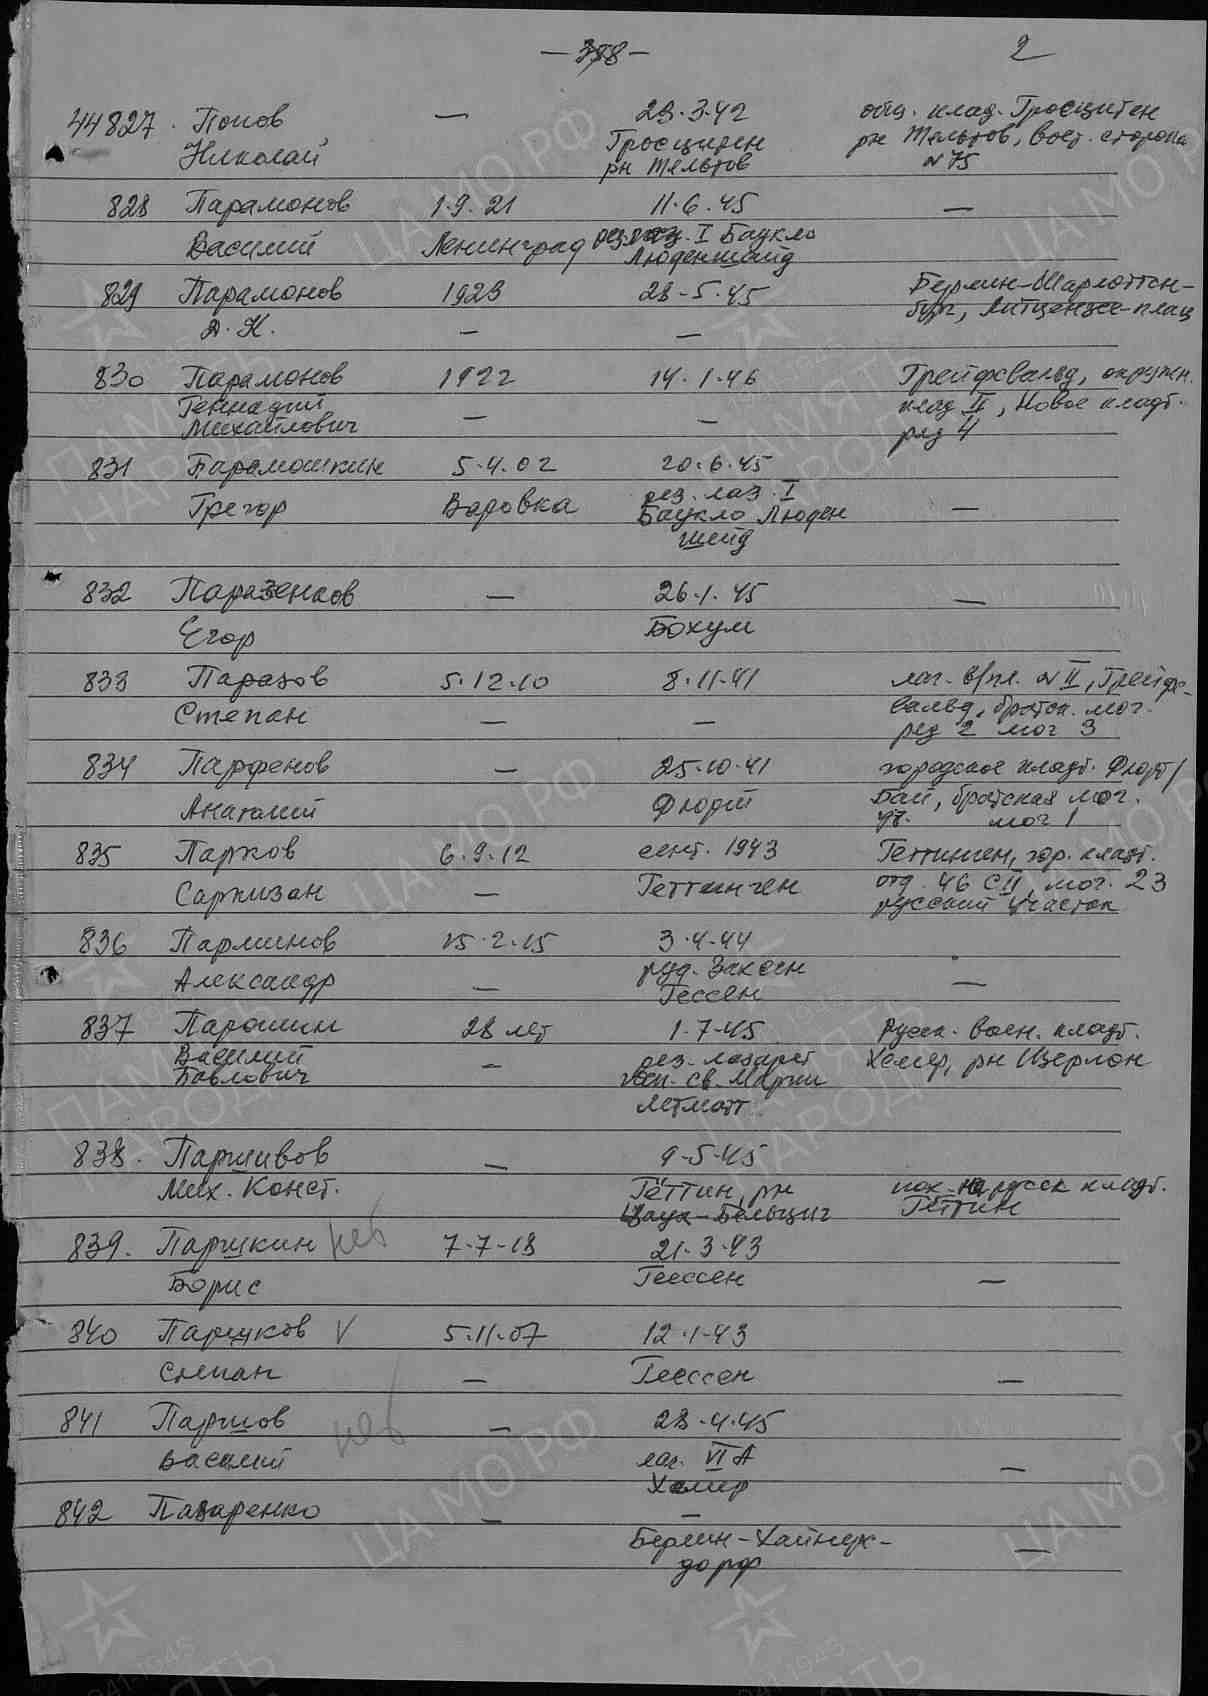 — 388 — 2
44827. Попов — 29.3.42 общ. клад. Гросциген
Николай Гросциген рн Тельтов, вост. сторона
рн Тельтов №75
828 Парамонов 1.9.21 11.6.45 —
Василий Ленинград рез. лаз. I Баукло
Люденшайд
829 Парамонов 1923 28-5.45 Берлин-Шарлоттен-
бург, Литцензее-плац
А. Н. — —
830 Парамонов 1922 14.1.46 Грейфсвальд, окружн.
Геннадий — — клад II, Новое кладб.
Михайлович ряд 4
831 Парамошкин 5.4.02 20.6.45
Грегор Вадовка рез. лаз. I —
Баукло Люден
шейд
832 Паразенков — 26.1.45 —
Егор Бохум
833 Паразов 5.12.10 8.11.41 лаг. в/пл. № II, Грейфс-
Степан — — вальд, братск. мог.
ряд 2 мог 3
834 Парфенов — 25.10.41 городское кладб. Флорт/
Анатолий Флорт Бай, братская мог.
мог 1
835 Парков 6.9.12 сент. 1943 Геттинген, гор. кладб.
Саркизан — Геттинген отд. 46 СII, мог. 23
русский участок
836 Парминов 15.2.15 3.4.44
Александр — руд. Заксен —
Гессен
837 Парошин 28 лет 1.7.45 Русск. воен. кладб.
Василий — рез. лазарет Хемер, рн Изерлон
Павлович госп. св. Марии
Летматт
838. Паршивов — 9.5.45
Мих. Конст. Гёттин, рн пох. на русск кладб.
Цаух-Бельциг Гёттин
839. Паршкин неб 7.7.18 21.3.43
Борис Геессен —
840 Паршков V 5.11.07 12.1.43
Степан — Геессен —
841 Паршов неб — 28.4.45
Василий лаг. VI А —
Хемер
842 Пазаренко — —
Берлин-Хайнек- —
дорф
ЦА МО РФ
ПАМЯТЬ
НАРОДА
1941-1945